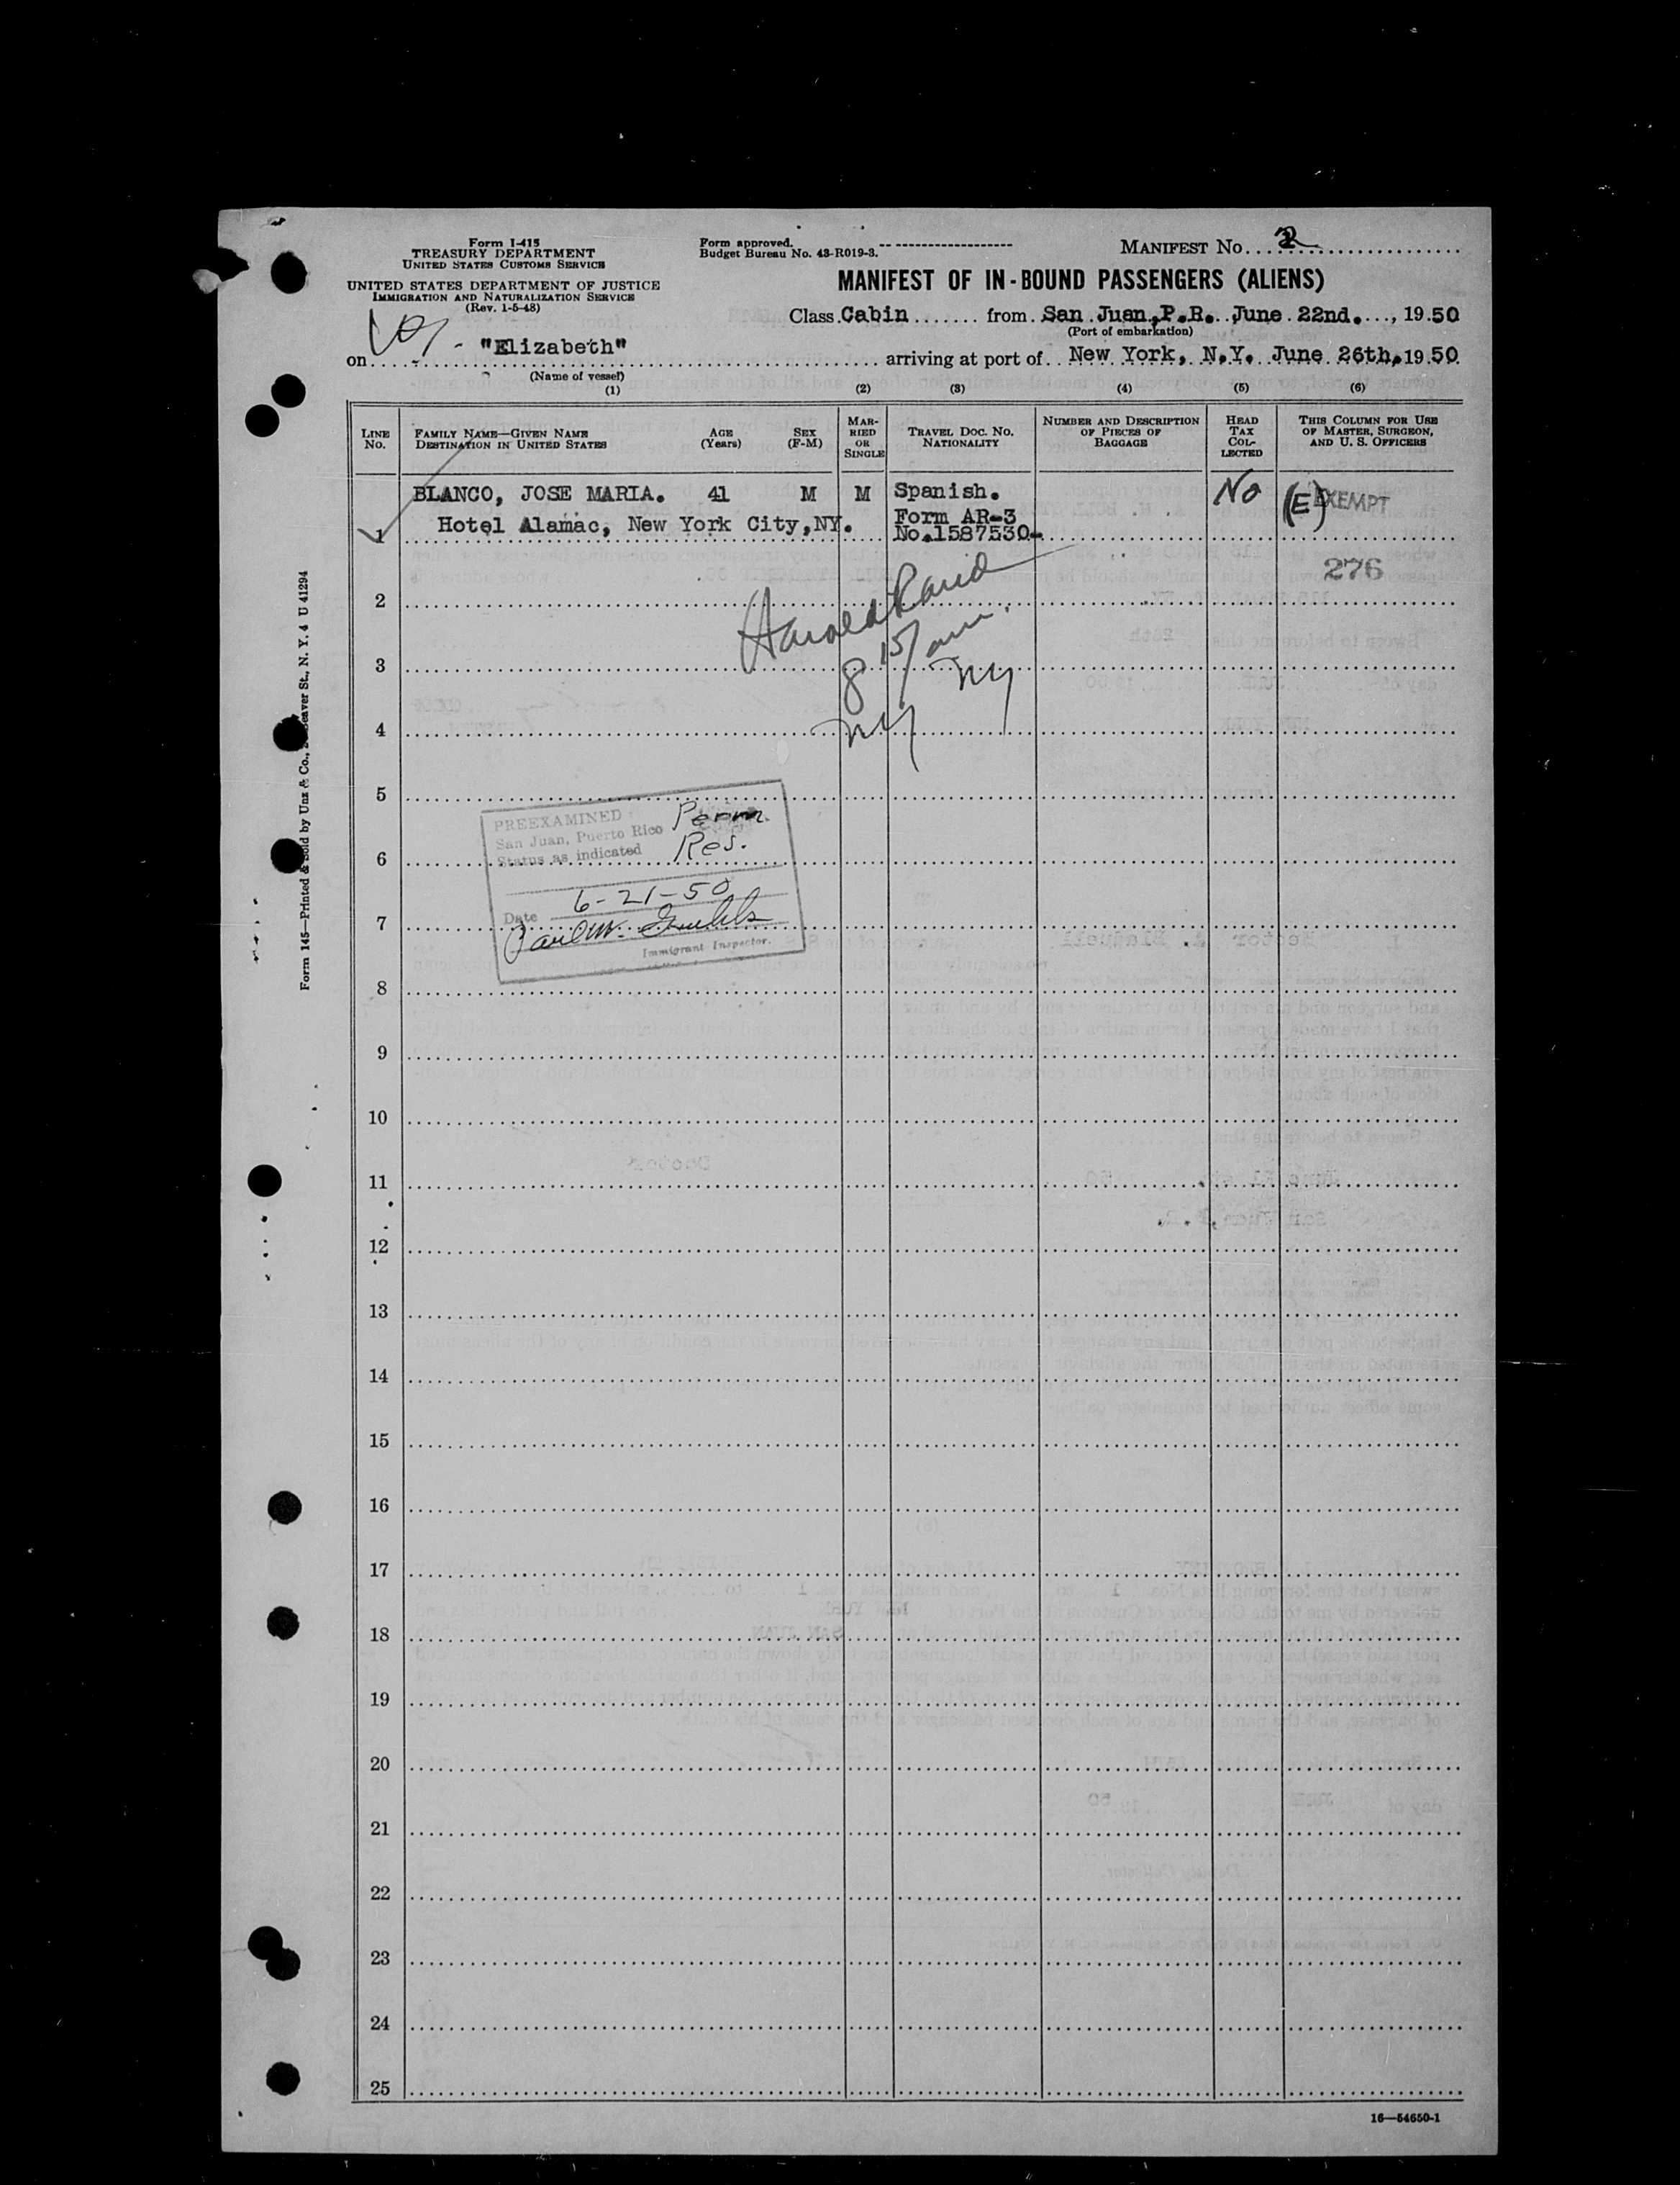 Form I-415
TREASURY DEPARTMENT
UNITED STATES CUSTOMS SERVICE
UNITED STATES DEPARTMENT OF JUSTICE
IMMIGRATION AND NATURALIZATION SERVICE
(Rev. 1-5-48)
Form approved.
Budget Bureau No. 43-R019-3.
MANIFEST NO. 2
MANIFEST OF IN-BOUND PASSENGERS (ALIENS)
Class Cabin from San Juan, P.R. June 22nd., 1950
(Port of embarkation)
on "Elizabeth" arriving at port of New York, N.Y. June 26th, 1950
(Name of vessel)
(1) (2) (3) (4) (5) (6)
LINE NO.
FAMILY NAME—GIVEN NAME
DESTINATION IN UNITED STATES
AGE (Years)
SEX (F-M)
MARRIED OR SINGLE
TRAVEL DOC. NO.
NATIONALITY
NUMBER AND DESCRIPTION OF PIECES OF BAGGAGE
HEAD TAX COLLECTED
THIS COLUMN FOR USE OF MASTER, SURGEON, AND U. S. OFFICERS
BLANCO, JOSE MARIA. 41 M M Spanish. No (E) EXEMPT
1 Hotel Alamac, New York City, NY. Form AR-3
No.1587530-
276
2
Harold
8 15/am.
3
NY
NY
4
5
PREEXAMINED
San Juan, Puerto Rico
Status as indicated
Perm.
Res.
6
Date 6-21-50
7
Immigrant Inspector.
8
9
10
11
12
13
14
15
16
17
18
19
20
21
22
23
24
25
16—54650-1
Form 145—Printed & Sold by Unz & Co., Beaver St., N. Y. 4 U 41294